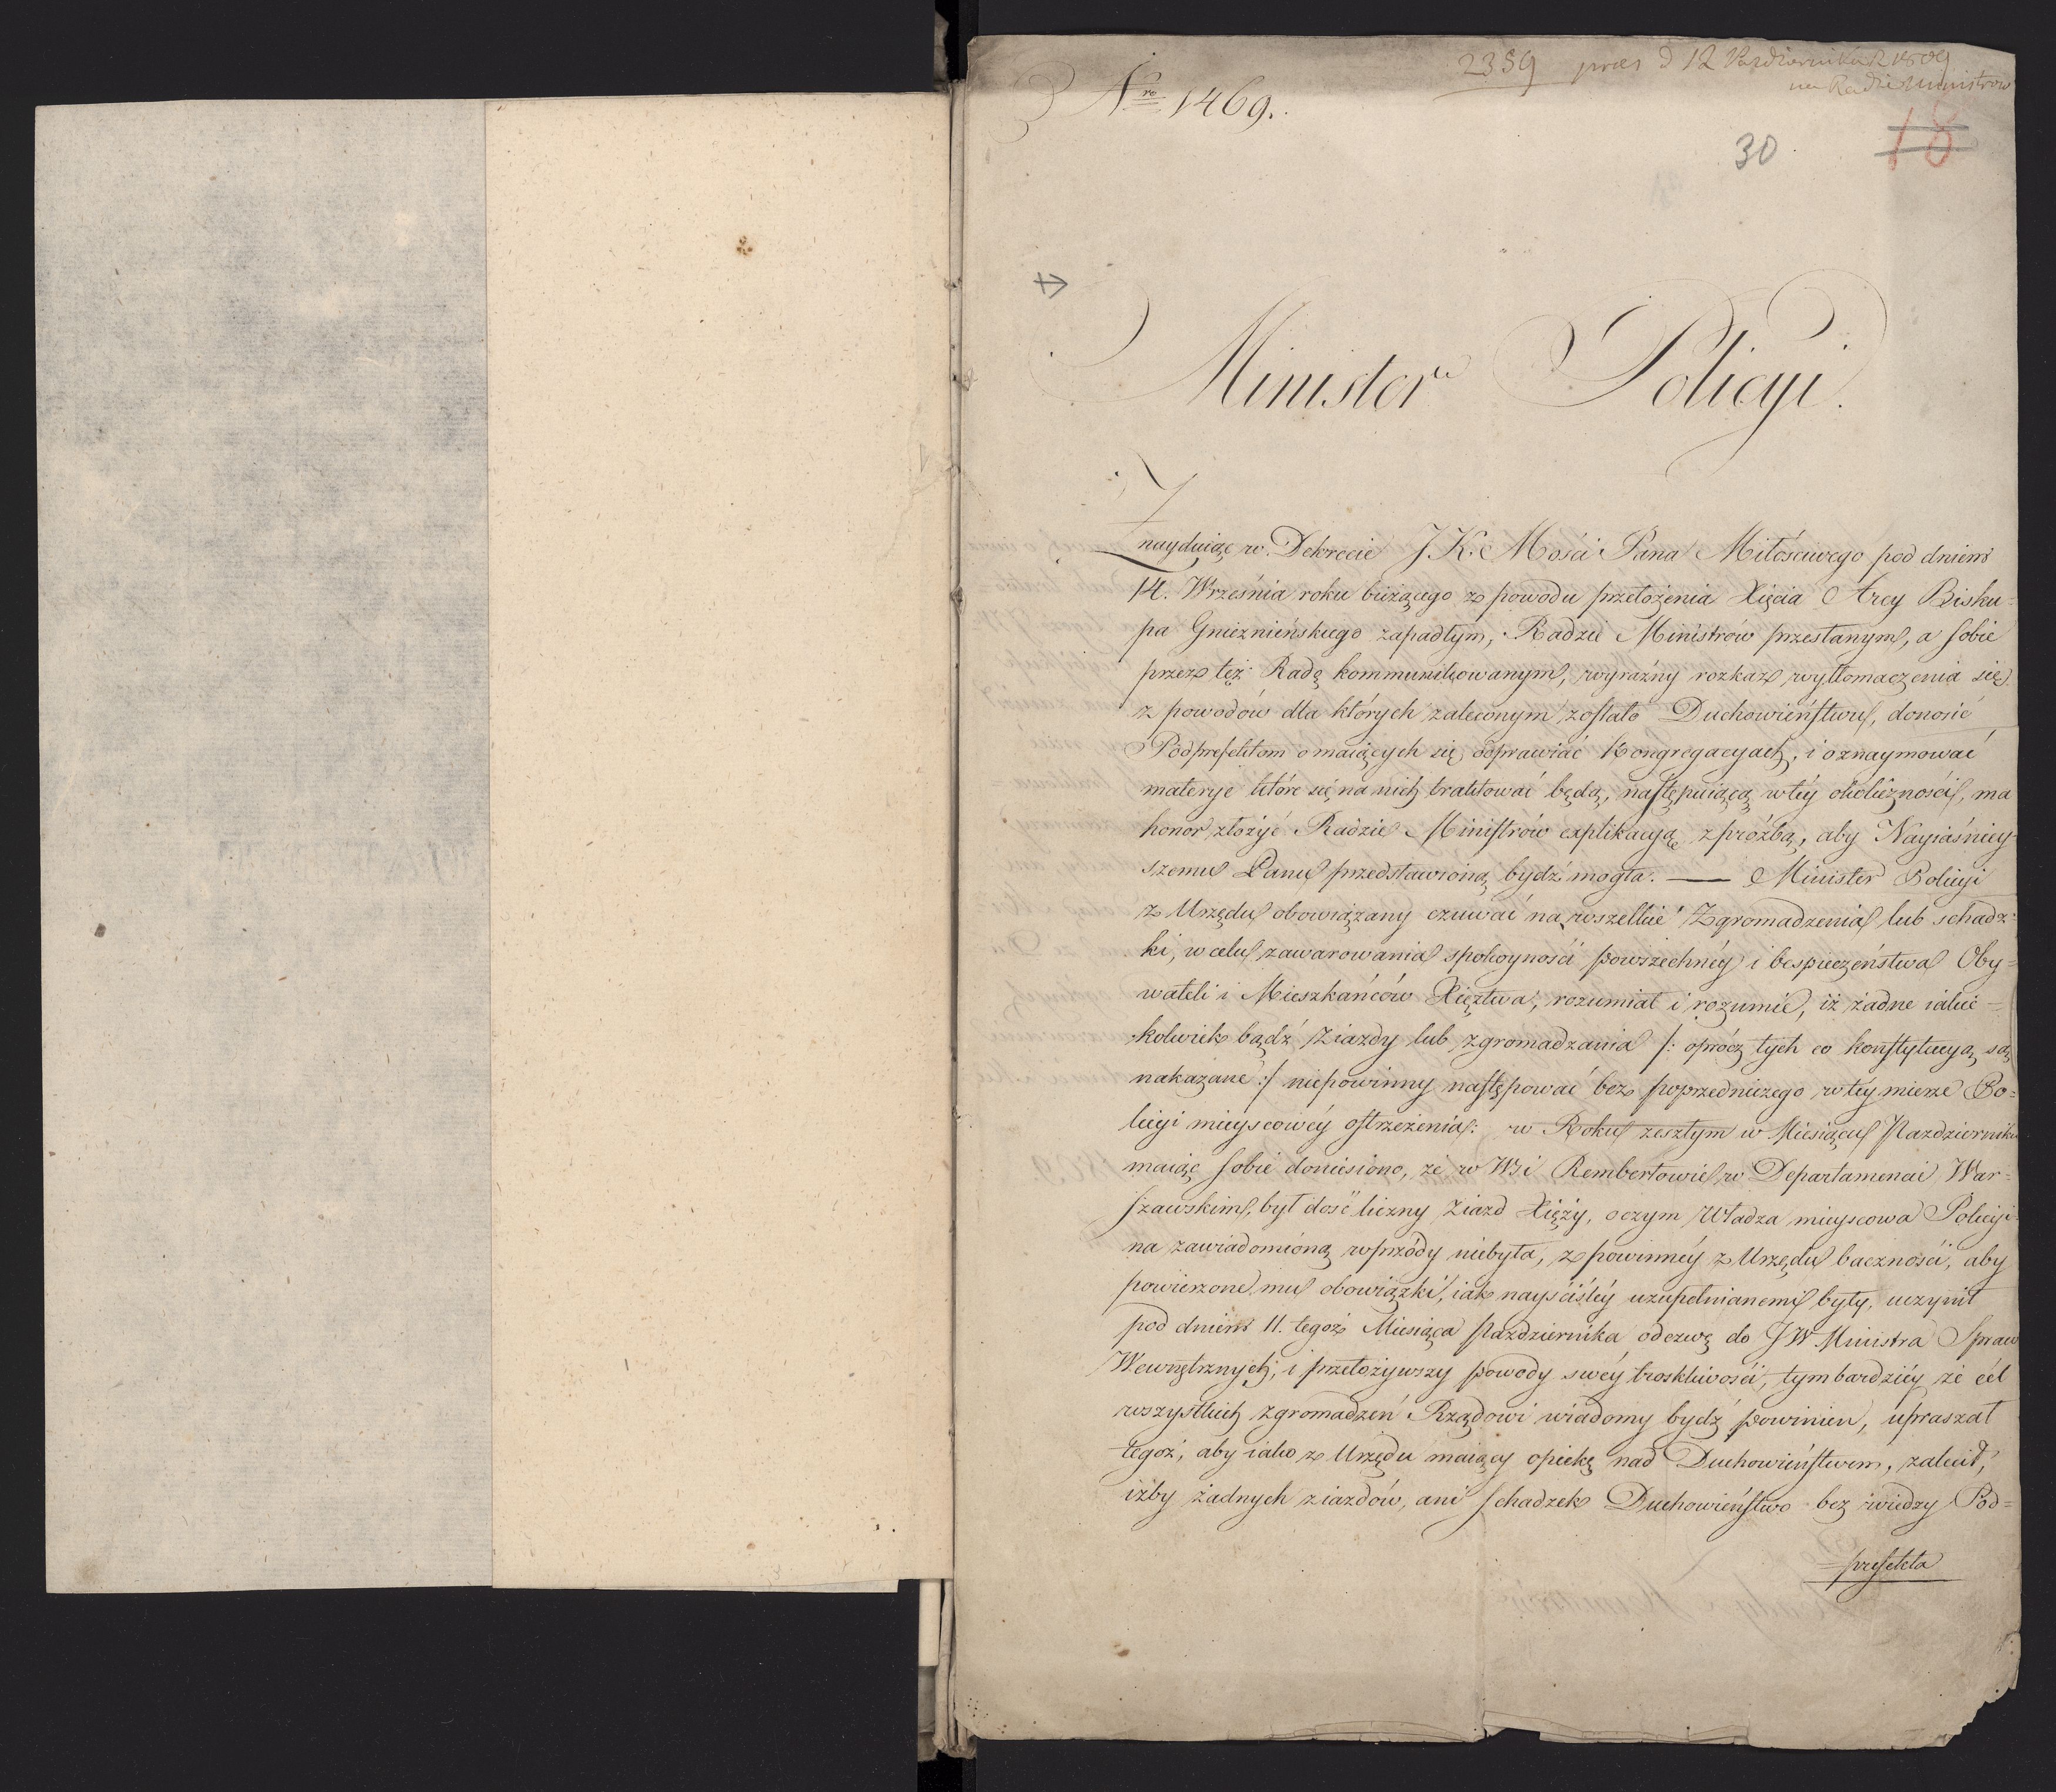 2359 præs d 12 Pazdziernika R 1809
na Radzie Ministrow
Nro 1469.
30 18
Minister Policyi.
Znayduiąc w Dekrecie J. K. Mości Pana Miłościwego pod dniem
14. Września roku bieżącego z powodu przełożenia Xięcia Arcy Bisku=
pa Gnieznieńskiego zapadłym, Radzie Ministrów przesłanym, a sobie
przez też Radę kommunikowanym, wyraźny rozkaz wytłomaczenia się
z powodów dla których zaleconym zostało Duchowieństwu, donosić
Podprefektom o maiących się odprawiać Kongregacyach, i oznaymować
materye które się na nich traktować będą, następuiącą w téy okoliczności, ma
honor złożyć Radzie Ministrów explikacyą z próźbą, aby Nayiaśniey=
szemu Panu przedstawioną bydź mogła. — Minister Policyi
z Urzędu obowiązany czuwać na wszelkie Zgromadzenia lub schadz=
ki, w celu zawarowania spokoyności powszechnéy i bespieczeństwa Oby=
wateli i Mieszkańców Xięztwa, rozumiał i rozumie, iż żadne iakie=
kolwiek bądź Ziazdy lub zgromadzania /: oprócz tych co konstytucyą są
nakazane :/ niepowinny następować bez poprzedniczego w téy mierze Po=
licyi mieyscowéy ostrzeżenia: w Roku zeszłym w Miesiącu Pazdzierniku
maiąc sobie doniesiono, że w Wsi Rembertowie w Departamencie War=
szawskim, był dość liczny Ziazd Xięży, o czym Władza mieyscowa Policyi=
na zawiadomioną wprzódy niebyła, z powinnéy z Urzędu baczności, aby
powierzone mu obowiązki, iak nayściśléy uzupełnianemi były, uczynił
pod dniem 11. tegoż Miesiąca Pazdziernika odezwę do JW Ministra Spraw
Wewnętrznych, i przełożywszy powody swéy troskliwości, tymbardziéy że cél
wszystkich zgromadzeń Rządowi wiadomy bydź powinien, upraszał
tegoż, aby iako z Urzędu maiący opiekę nad Duchowieństwem, zalecił,
iżby żadnych ziazdów, ani schadzek Duchowieństwo bez wiedzy Pod=
=prefekta